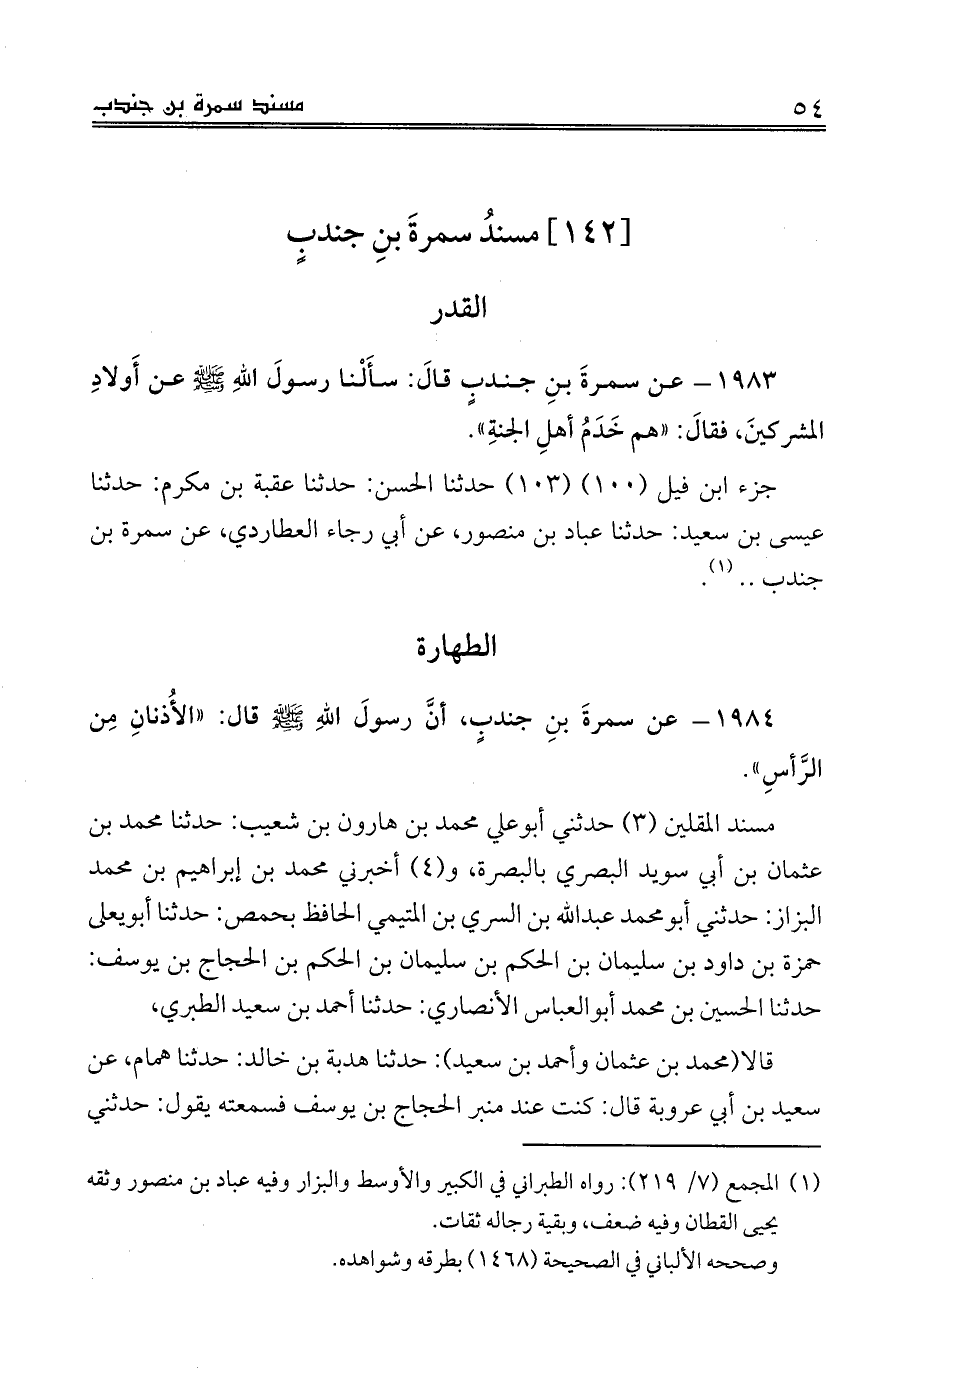 ٥٤ مسند سمرة بن جندب
[١٤٢] مسندُ سمرةَ بنِ جندبٍ
القدر
١٩٨٣ - عن سمرةَ بنِ جندبٍ قالَ: سألْنا رسولَ اللهِ ﷺ عن أَولادِ
المشركينَ، فقالَ: «هم خَدَمُ أهلِ الجنةِ».
جزء ابن فيل (١٠٠) (١٠٣) حدثنا الحسن: حدثنا عقبة بن مكرم: حدثنا
عيسى بن سعيد: حدثنا عباد بن منصور، عن أبي رجاء العطاردي، عن سمرة بن
جندب .. (١).
الطهارة
١٩٨٤ - عن سمرةَ بنِ جندبٍ، أنَّ رسولَ اللهِ ﷺ قال: «الأُذنانِ مِن
الرَّأسِ».
مسند المقلين (٣) حدثني أبوعلي محمد بن هارون بن شعيب: حدثنا محمد بن
عثمان بن أبي سويد البصري بالبصرة، و(٤) أخبرني محمد بن إبراهيم بن محمد
البزاز: حدثني أبومحمد عبدالله بن السري بن المتيمي الحافظ بحمص: حدثنا أبويعلى
حمزة بن داود بن سليمان بن الحكم بن سليمان بن الحكم بن الحجاج بن يوسف:
حدثنا الحسين بن محمد أبوالعباس الأنصاري: حدثنا أحمد بن سعيد الطبري،
قالا(محمد بن عثمان وأحمد بن سعيد): حدثنا هدبة بن خالد: حدثنا همام، عن
سعيد بن أبي عروبة قال: كنت عند منبر الحجاج بن يوسف فسمعته يقول: حدثني
(١) المجمع (٧/ ٢١٩): رواه الطبراني في الكبير والأوسط والبزار وفيه عباد بن منصور وثقه
يحيى القطان وفيه ضعف، وبقية رجاله ثقات.
وصححه الألباني في الصحيحة (١٤٦٨) بطرقه وشواهده.